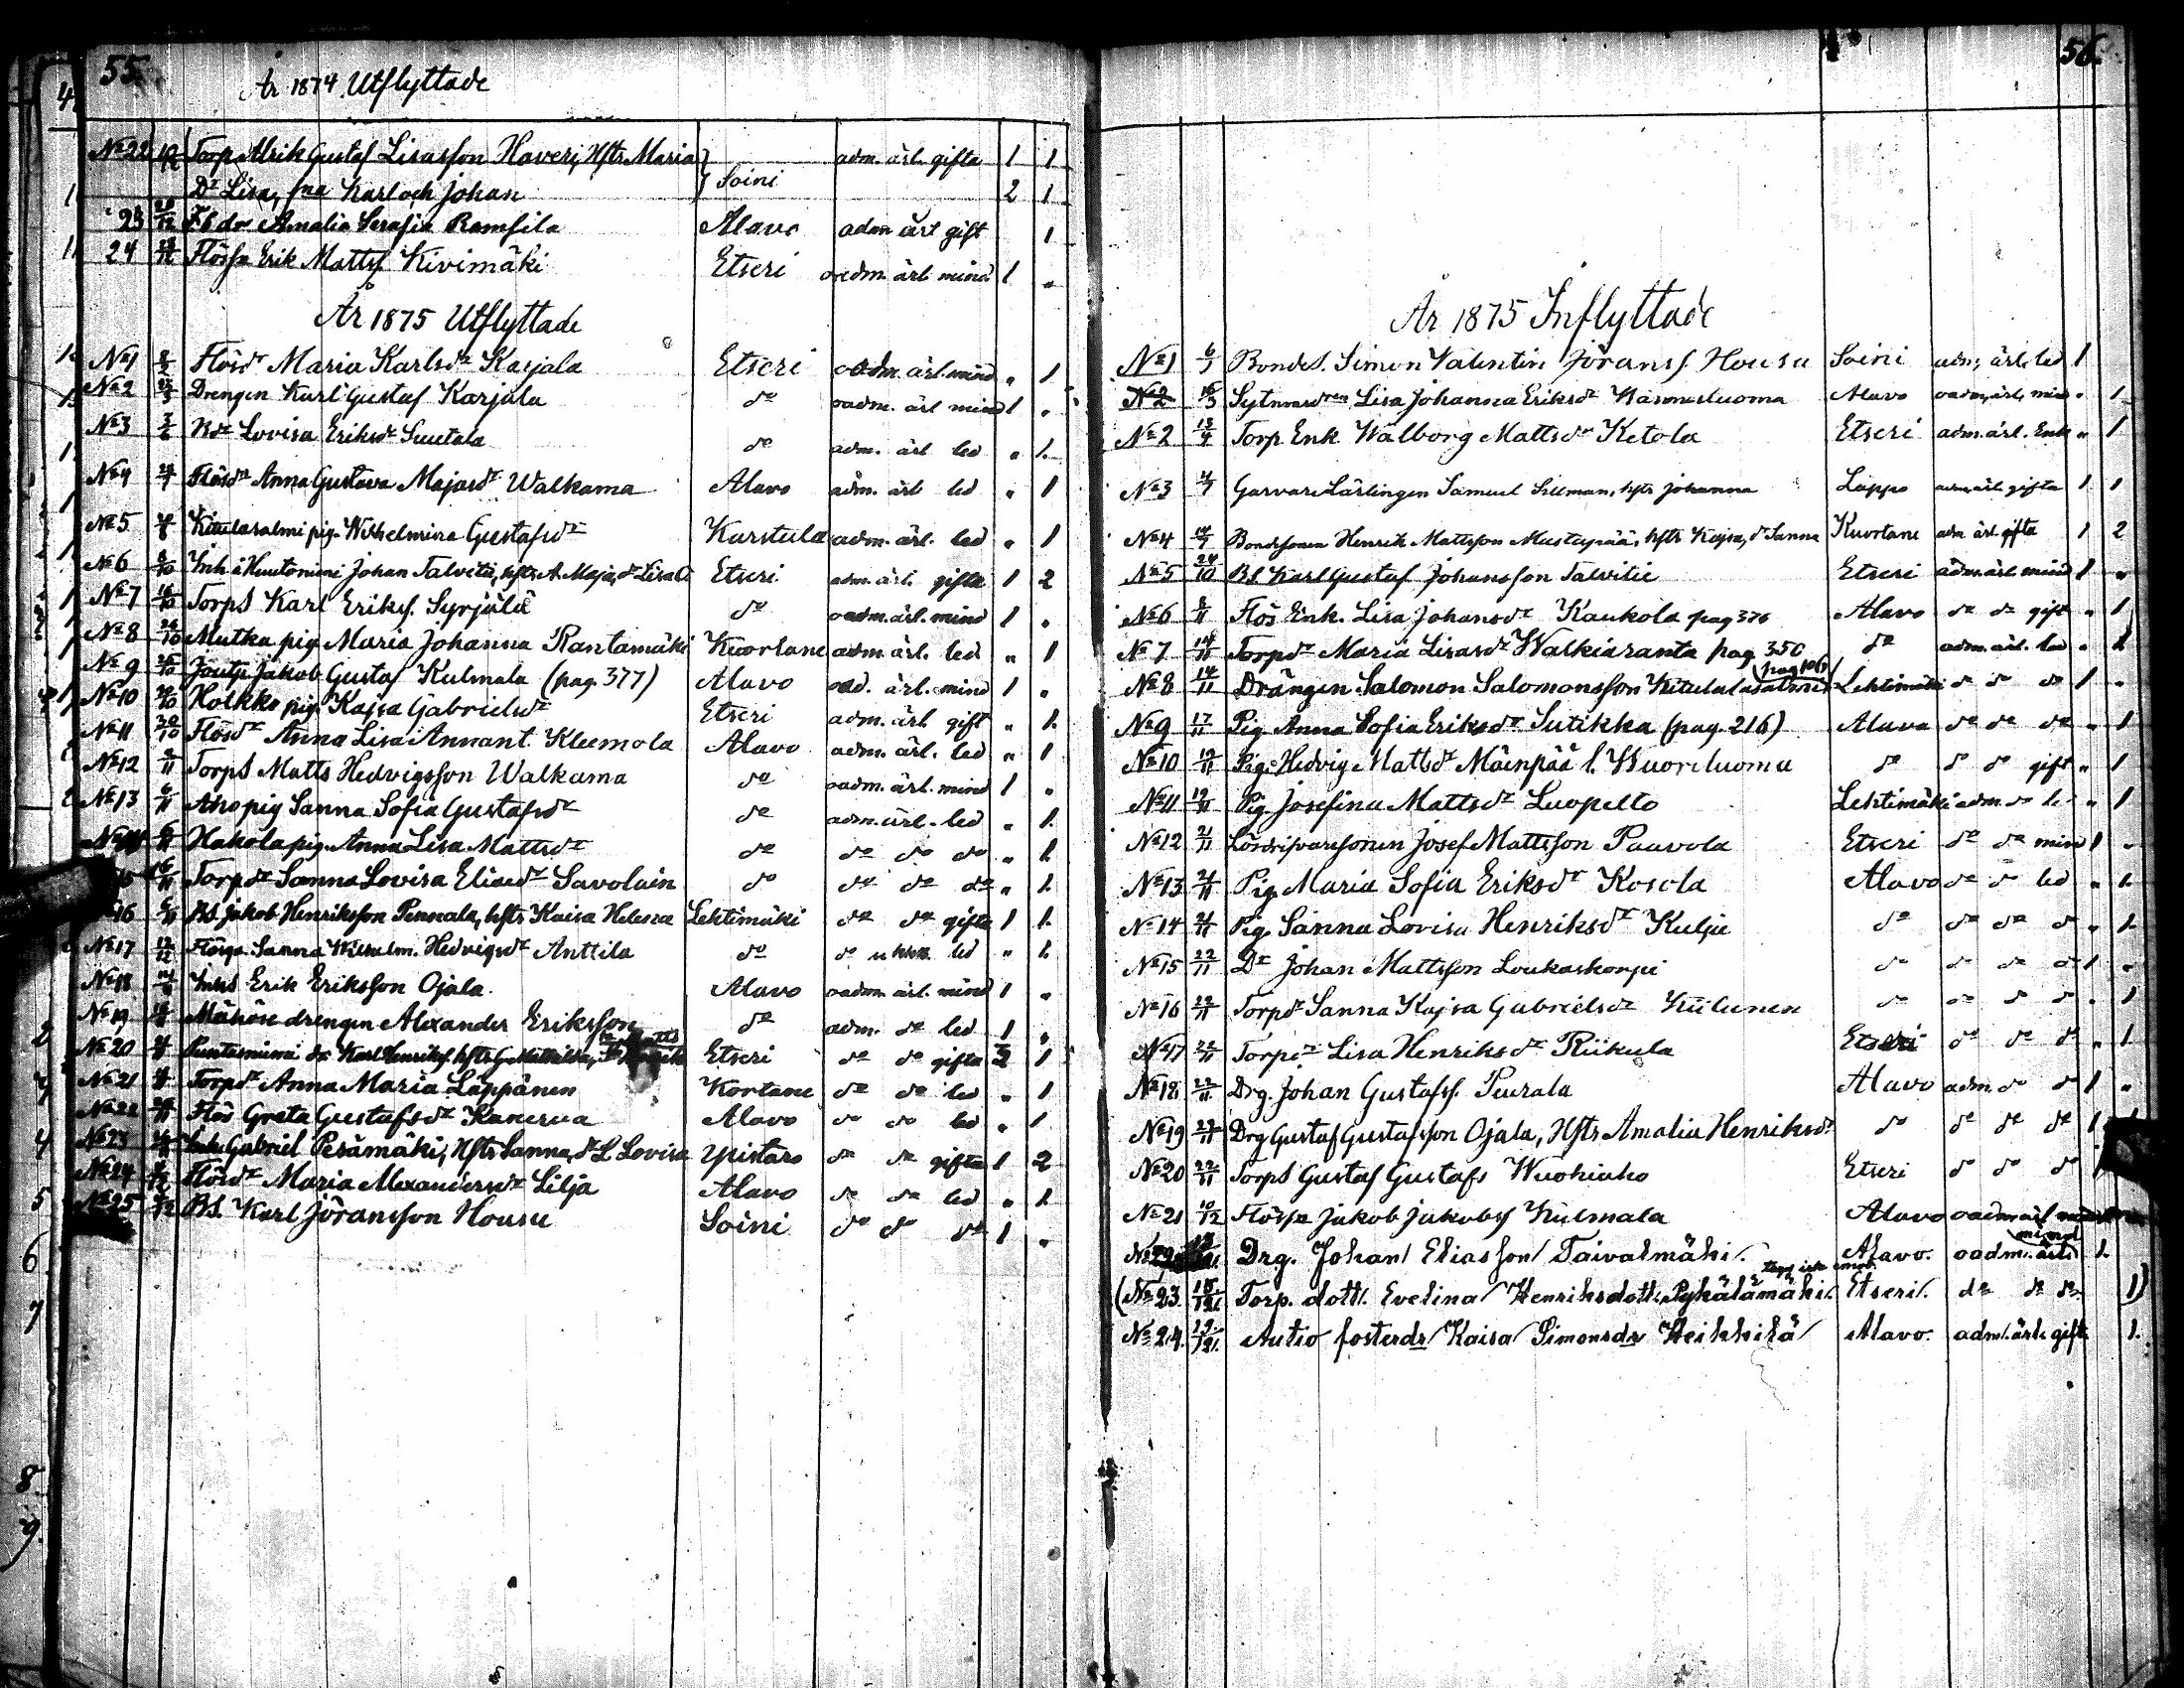 55.
År 1874 Utflyttade
No 22 Torp Alrik Gustaf Lisasson Haveri, Hstr Maria adm. ärl. gifta 1 1
Dr Lisa, Karl och Johan Soini 2 1
23 Amalia Serafia Ramsila Alavo adm ärl gift 1
24 Erik Matts. Kivimäki Etseri oadm. ärl. mind 1 "
År 1875 Utflyttade
No 1 Flösdr Maria Karlsdr Karjala Etseri oadm. ärl. mind " 1
No 2 Drengen Karl Gustaf Karjala do oadm. ärl mind 1 "
No 3 Lovisa Eriksdr Suutala do adm. ärl led " 1.
No 4 Flösdr Anna Gustava Majasdr Walkama Alavo adm. ärl led " 1
No 5 Kiitulasalmi pig. Wilhelmina Gustafsdr Karstula adm. ärl. led " 1
No 6 8/10 Inh å Huutoniemi Johan Talvitii, hstr A. Maja, dr Lisa Etseri adm. ärl. gifta 1 2
No 7 Torps Karl Eriks. Syrjälä do oadm. ärl. mind 1 "
No 8 Mutka pig. Maria Johanna Rantamäki Kuortane adm. ärl. led " 1
No 9 Jakob Gustaf Kulmala (pag. 377) Alavo oad. ärl. mind 1 "
No 10 Holkko pig. Kajsa Gabrielsdr Etseri adm. ärl gift " 1.
No 11 30/10 Flösdr Anna Lisa Annant. Kleemola Alavo adm. ärl. led " 1
No 12 Torps Matts Hedvigsson Walkama do oadm. ärl. mind 1 "
No 13 6/11 Aho pig Sanna Sofia Gustafsdr do adm. ärl. led " 1.
Hakola pig. Anna Lisa Mattsdr do do do do " 1.
15 6/11 Torpdr Sanna Lovisa Eliaedr Savolain do do do do " 1.
16 Bs. Jakob Henriksson Pennala, hstr Kaisa Helena Lehtimäki do do gifta 1 1.
No 17 Sanna Wilhelm. Hedvigsdr Anttila do do led " 1.
No 18 Inhs Erik Eriksson Ojala. Alavo oadm ärl. mind 1 "
No 19 drengen Alexander Eriksson do adm. do led 1 "
No 20 Karl Henriks. hstr G. Mathilda, Etseri do do gifta 2 1
No 21 Torpdr Anna Maria Läppänen Kortane do do led " 1
No 22 Flös Greta Gustafsdr Kanerva Alavo do do led " 1
No 23 Gabriel Perämäki, Hstr Sanna, dr L Lovisa Ypistaro do do gifta 1 2
No 24 Flösdr Maria Alexandersdr Lilja Alavo do do led " 1.
No 25 Bs. Karl Jöransson Housu Soini do do do 1 "
56.
År 1875 Inflyttade
No 1 Bondes. Simon Valentin Jöranss. Housu Soini adm, ärl. led 1
No 2 Lisa Johanna Eriksdr Alavo oadm, ärl, mind " 1
No 2 13/4 Torp Enk Walborg Mattsdr Ketola Etseri adm. ärl. Enk " 1
No 3 Garvare Lärlingen Samuel Silleman, hstr Johanna Lappo adm. ärl. gifta 1 1
No 4 Bondesonen Henrik Mattsson Mustapää, hstr Kajsa, dr Sanna Kuortane adm ärl gifta 1 2
No 5 24/10 Bs. Karl Gustaf Johansson Talvitie Etseri adm. ärl mind 1 "
No 6 8/11 Flös Enk. Lisa Johansdr Kaukola pag 376 Alavo do do gift " 1
No 7 14/11 Torpdr Maria Lisasdr Walkiaranta pag. 350 do adm. ärl. led " 1
No 8 14/11 Drängen Salomon Salomonsson Kitulalasalmi Lehtimäki do do do 1 "
No 9 17/11 Pig. Anna Sofia Eriksdr Sutikka (pag. 216) Alavo do do do " 1
No 10 19/11 Pig. Hedvig Mattsdr Mäenpää l. Wuoriluoma do do do gift " 1
No 11 19/11 Pig. Josefina Mattsdr Luopelto Lehtimäki adm. do led " 1
No 12 21/11 Josef Mattsson Paavola Etseri do do mind 1 "
No 13 21/11 Pig. Maria Sofia Eriksdr Kosola Alavo do do led " 1.
No 14 21/11 Pig. Sanna Lovisa Henriksdr Kulju do do do do " 1.
No 15 22/11 Dr Johan Mattsson Loukaskorpi do do do do 1 "
No 16 22/11 Torpdr Sanna Kajsa Gabrielsdr Kiilunen do do do do " 1
No 17 22/11 Torpdr Lisa Henriksdr Riikula Etseri do do do " 1
No 18 22/11 Drg. Johan Gustafss. Peurala Alavo adm. do do 1 "
No 19 22/11 Drg Gustaf Gustafsson Ojala, Hstr Amalia Henriksdr do do do do 1
No 20 22/11 Torps Gustaf Gustafs Wuohiaho Etseri do do do
No 21 10/12 Jakob Jakobs Kulmala Alavo oadm ärl mind
No 22 Drg. Johan Eliasson Taivalmäki. Alavo. oadm. ärl. mind 1.
(No 23. 18/12. Torp. dott. Evelina Henriksdott. Pykälämäki. Etseri. do do do 1)
No 24. 19/12. Autio fosterdr Kaisa Simonsdr Heikkilä Alavo. adm. ärl. gift 1.